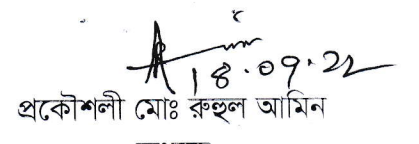 18.09.22
প্রকৌশলী মোঃ রুহুল আমিন